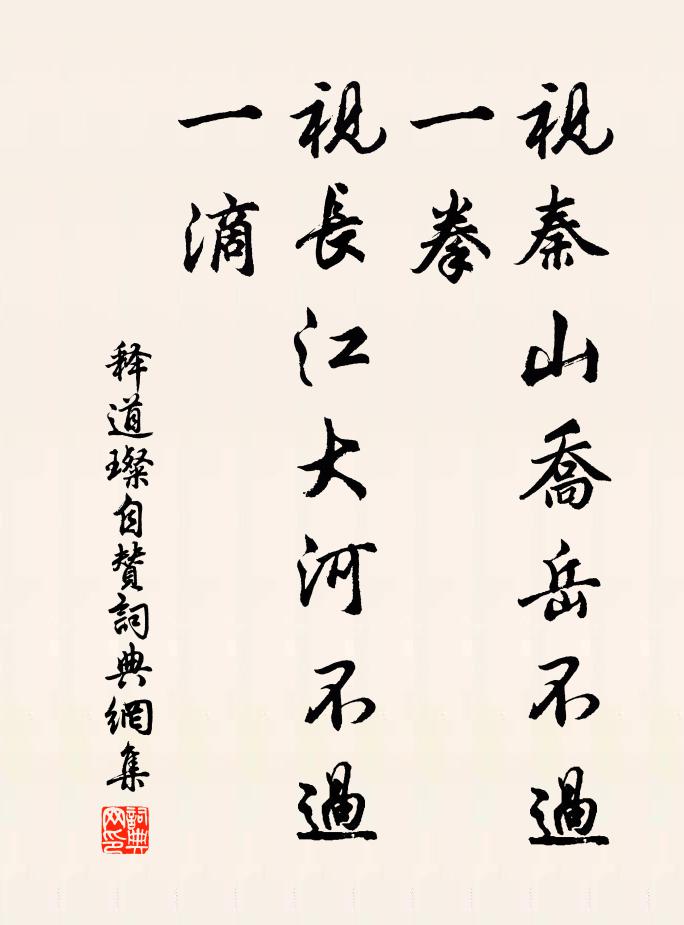 視秦山喬岳不過
一拳
視長江大河不過
一滴
释道璨自赞詞典網集
詞典网印